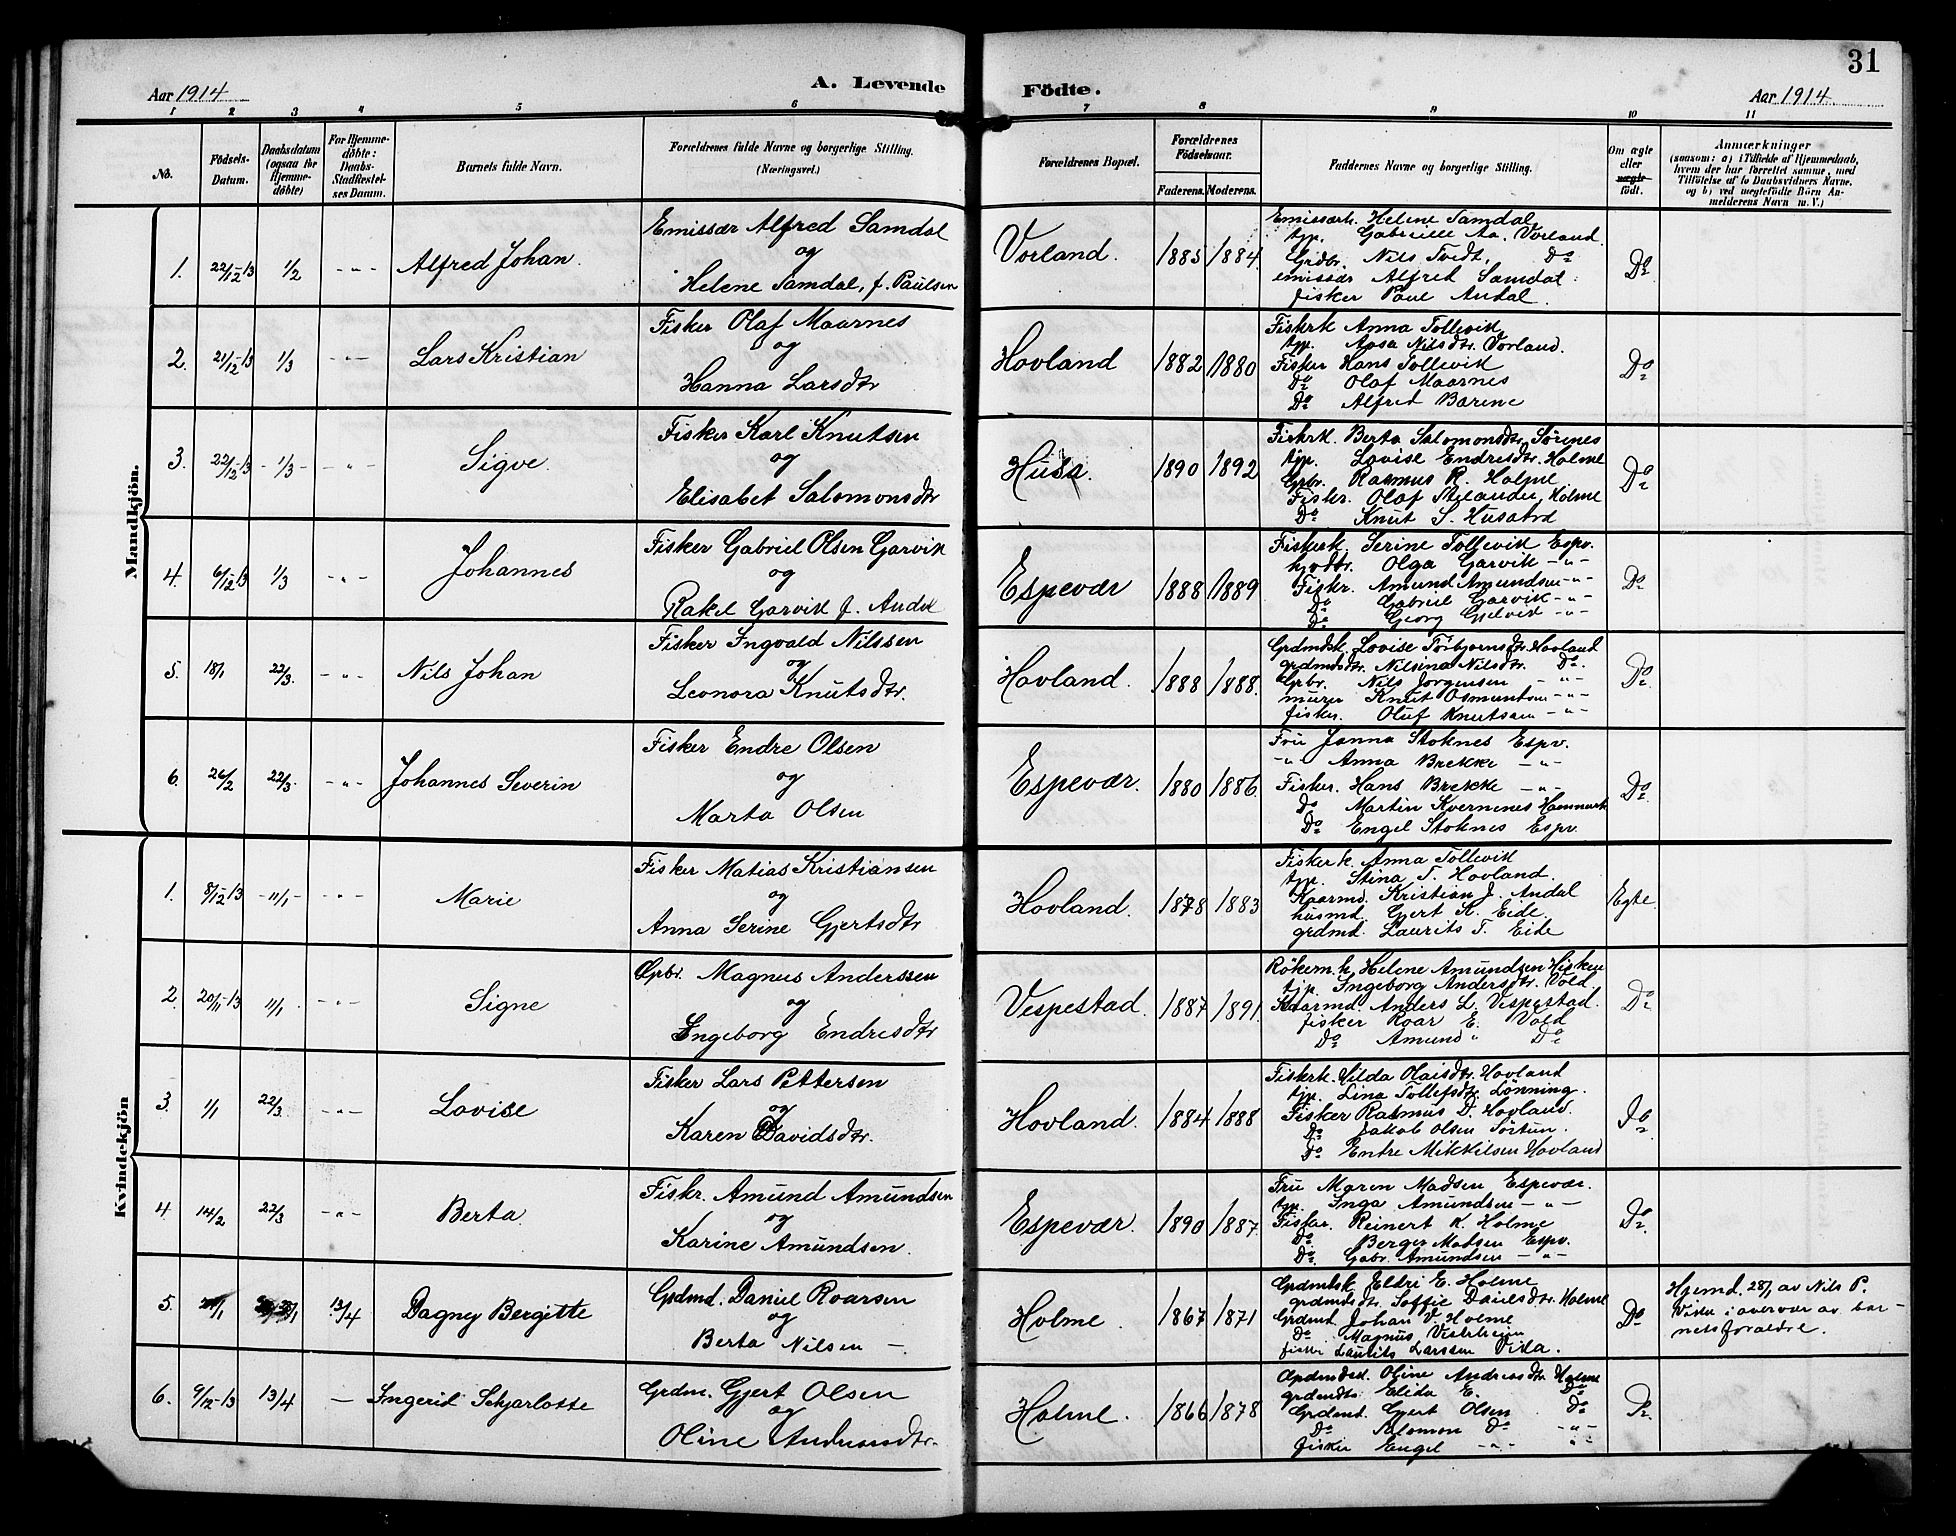 31
Aar 1914
A. Levende
Födte.
Aar 1914
1 2 3 4 5 6 7 8 9 10 11
No.
Födsels-
Datum.
Daabsdatum
(ogsaa for
Hjemme-
döbte)
For Hjemme-
döbte:
Daabs-
Stadfæstel-
ses Datum.
Barnets fulde Navn.
Forældrenes fulde Navne og borgerlige Stilling.
(Næringsvei.)
Forældrenes Bopæl.
Forældrenes
Födselsaar.
Faderens. Moderens.
Faddernes Navne og borgerlige Stilling.
Om ægte
eller
uægte
födt.
Anmærkninger
(saasom: a) i Tilfælde af Hjemmedaab,
hvem der har forrettet samme, med
Tilföielse af to Daabsvidners Navne,
og b) ved uegtefödte Börn An-
melderens Navn m. V.)
Mandkjön.
1. 22/12-13 1/2 -"- Alfred Johan
Emissær Alfred Samdal
og
Helene Samdal, f. Paulsen
Vorland. 1885 1884
Emissærk. Helene Samdal
tjp. Gabrielle Aa. Vorland.
Grdbr. Nils Tvedt, Do
emissær Alfred Samdal
fisker Paul Andal.
Do
2. 21/12-13 1/3 -"- Lars Kristian
Fisker Olaf Maarnes
og
Hanna Larsdtr
Hovland 1882 1880
Fiskrk Anna Tollevik
tjp. Aasa Nilsdtr. Vorland.
Fisker Hans Tollevik
Do Olaf Maarnes
Do Alfred Bærene
Do
3. 22/12-13 1/3 -"- Sigve.
Fisker Karl Knutsen
og
Elisabet Salomonsdtr
Husa. 1890 1892
Fiskrk. Berta Salomonsdtr. Sørenes
tjp. Lovise Endresdtr. Holme
Gbr. Rasmus R. Holme
Fiskr. Olaf Holme
Do Knut S.
Do
4. 6/12-13 1/3 -"- Johannes
Fisker Gabriel Olsen Garvik
og
Rakel Garvik f.
Espevær 1888 1889
Fiskerk. Serine Tollevik Espv.
Olga Garvik -"-
Fiskr. Amund Amundsen -"-
Do Gabriel Garvik -"-
Do Georg -"-
Do
5. 18/1 22/3. -"- Nils Johan
Fisker Ingvald Nilssen
og
Leonora Knutsdtr.
Hovland. 1888 1888.
Grdmdsk. Lovise Torbjørnsdtr Hovland
grdmdsdtr. Nilsina Nilsdtr. Do.
Grbr. Nils Jørgensen -"-
murer Knut Osmundsen -"-
fisker. Oluf Knutsen -"-
Do
6. 26/2 22/3. -"- Johannes Severin
Fisker Endre Olsen
og
Marta Olsen
Espevær. 1880 1886
Fru Janna Stoknes Espv.
-"- Anna Brekke -"-
Fisker. Hans Brekke -"-
Do Martin Kvernenes
Do Engel Stoknes Espv.
Do
Kvindekjön
1. 8/12-13 -11/1- -"- Marie
Fisker Matias Kristiansen
og
Anna Serine Gjertsdtr
Hovland. 1878 1883
Fiskerk. Anna Tollevik
tjp. Stina T. Hovland.
Kaarmd. Kristian J. Andal
husmd. Gjert K. Eide.
grdmd. Laurits T. Eide
Egte.
2. 20/11-13 11/1. -"- Signe
Gbr. Magnus Anderssen
og
Ingeborg Endresdtr
Vespestad. 1887 1891.
Helene Amundsen
tjp. Ingeborg Andersdtr. Vold
Kaarmd. Anders L. Vespestad.
fisker Roar E. Vold
Do Amund " Do
Do
3. 1/1 22/3 -"- Lovise
Fisker Lars Pettersen
og
Karen Davidsdtr.
Hovland. 1884 1888
Fiskrk. Hilda Olaisdtr. Hovland
tjp. Lina Tollefsdtr. Lønning.
Fisker Rasmus D. Hovland.
Do Jakob Olsen Sørtun.
Do Entre Mikkelsen Hovland
Do
4. 14/2 22/3 -"- Berta
Fiskr. Amund Amundsen
og
Karine Amundsen.
Espevær 1890 1887.
Fru Maren Madsen Espevær.
tjp. Inga Amundsen -"-
Fisker. Reinert K. Holme
Do Berger Madsen Espv.
Do Gabr. Amundsen -"-
Do
5. 13/4 Dagney Bergitte
Grdmd. Daniel Roarsen
og
Berta Nilsen -
Holme. 1867 1871
Grdmdsk Eldri E. Holme
grdmdsdtr. Soffie Danielsdtr. Holme
Grdmd Johan V. Holme
Do Magnus
fisker Laurits Larssen Vika.
Do
Hjemd. 28/1 av Nils P.
Vika i overvær av bar-
netsforældre.
6. 9/12-13 13/4 - Ingerid Schjarlotte
Grdm. Gjert Olsen
og
Oline Andreasdtr.
Holme. 1866 1878
Oline Andreasdtr Holme
grdmdtr. Elida E. Do
Grdmd. Gjert Olsen Do
Do Salomon Do -"-
fisker Engel -"- -"-
Do